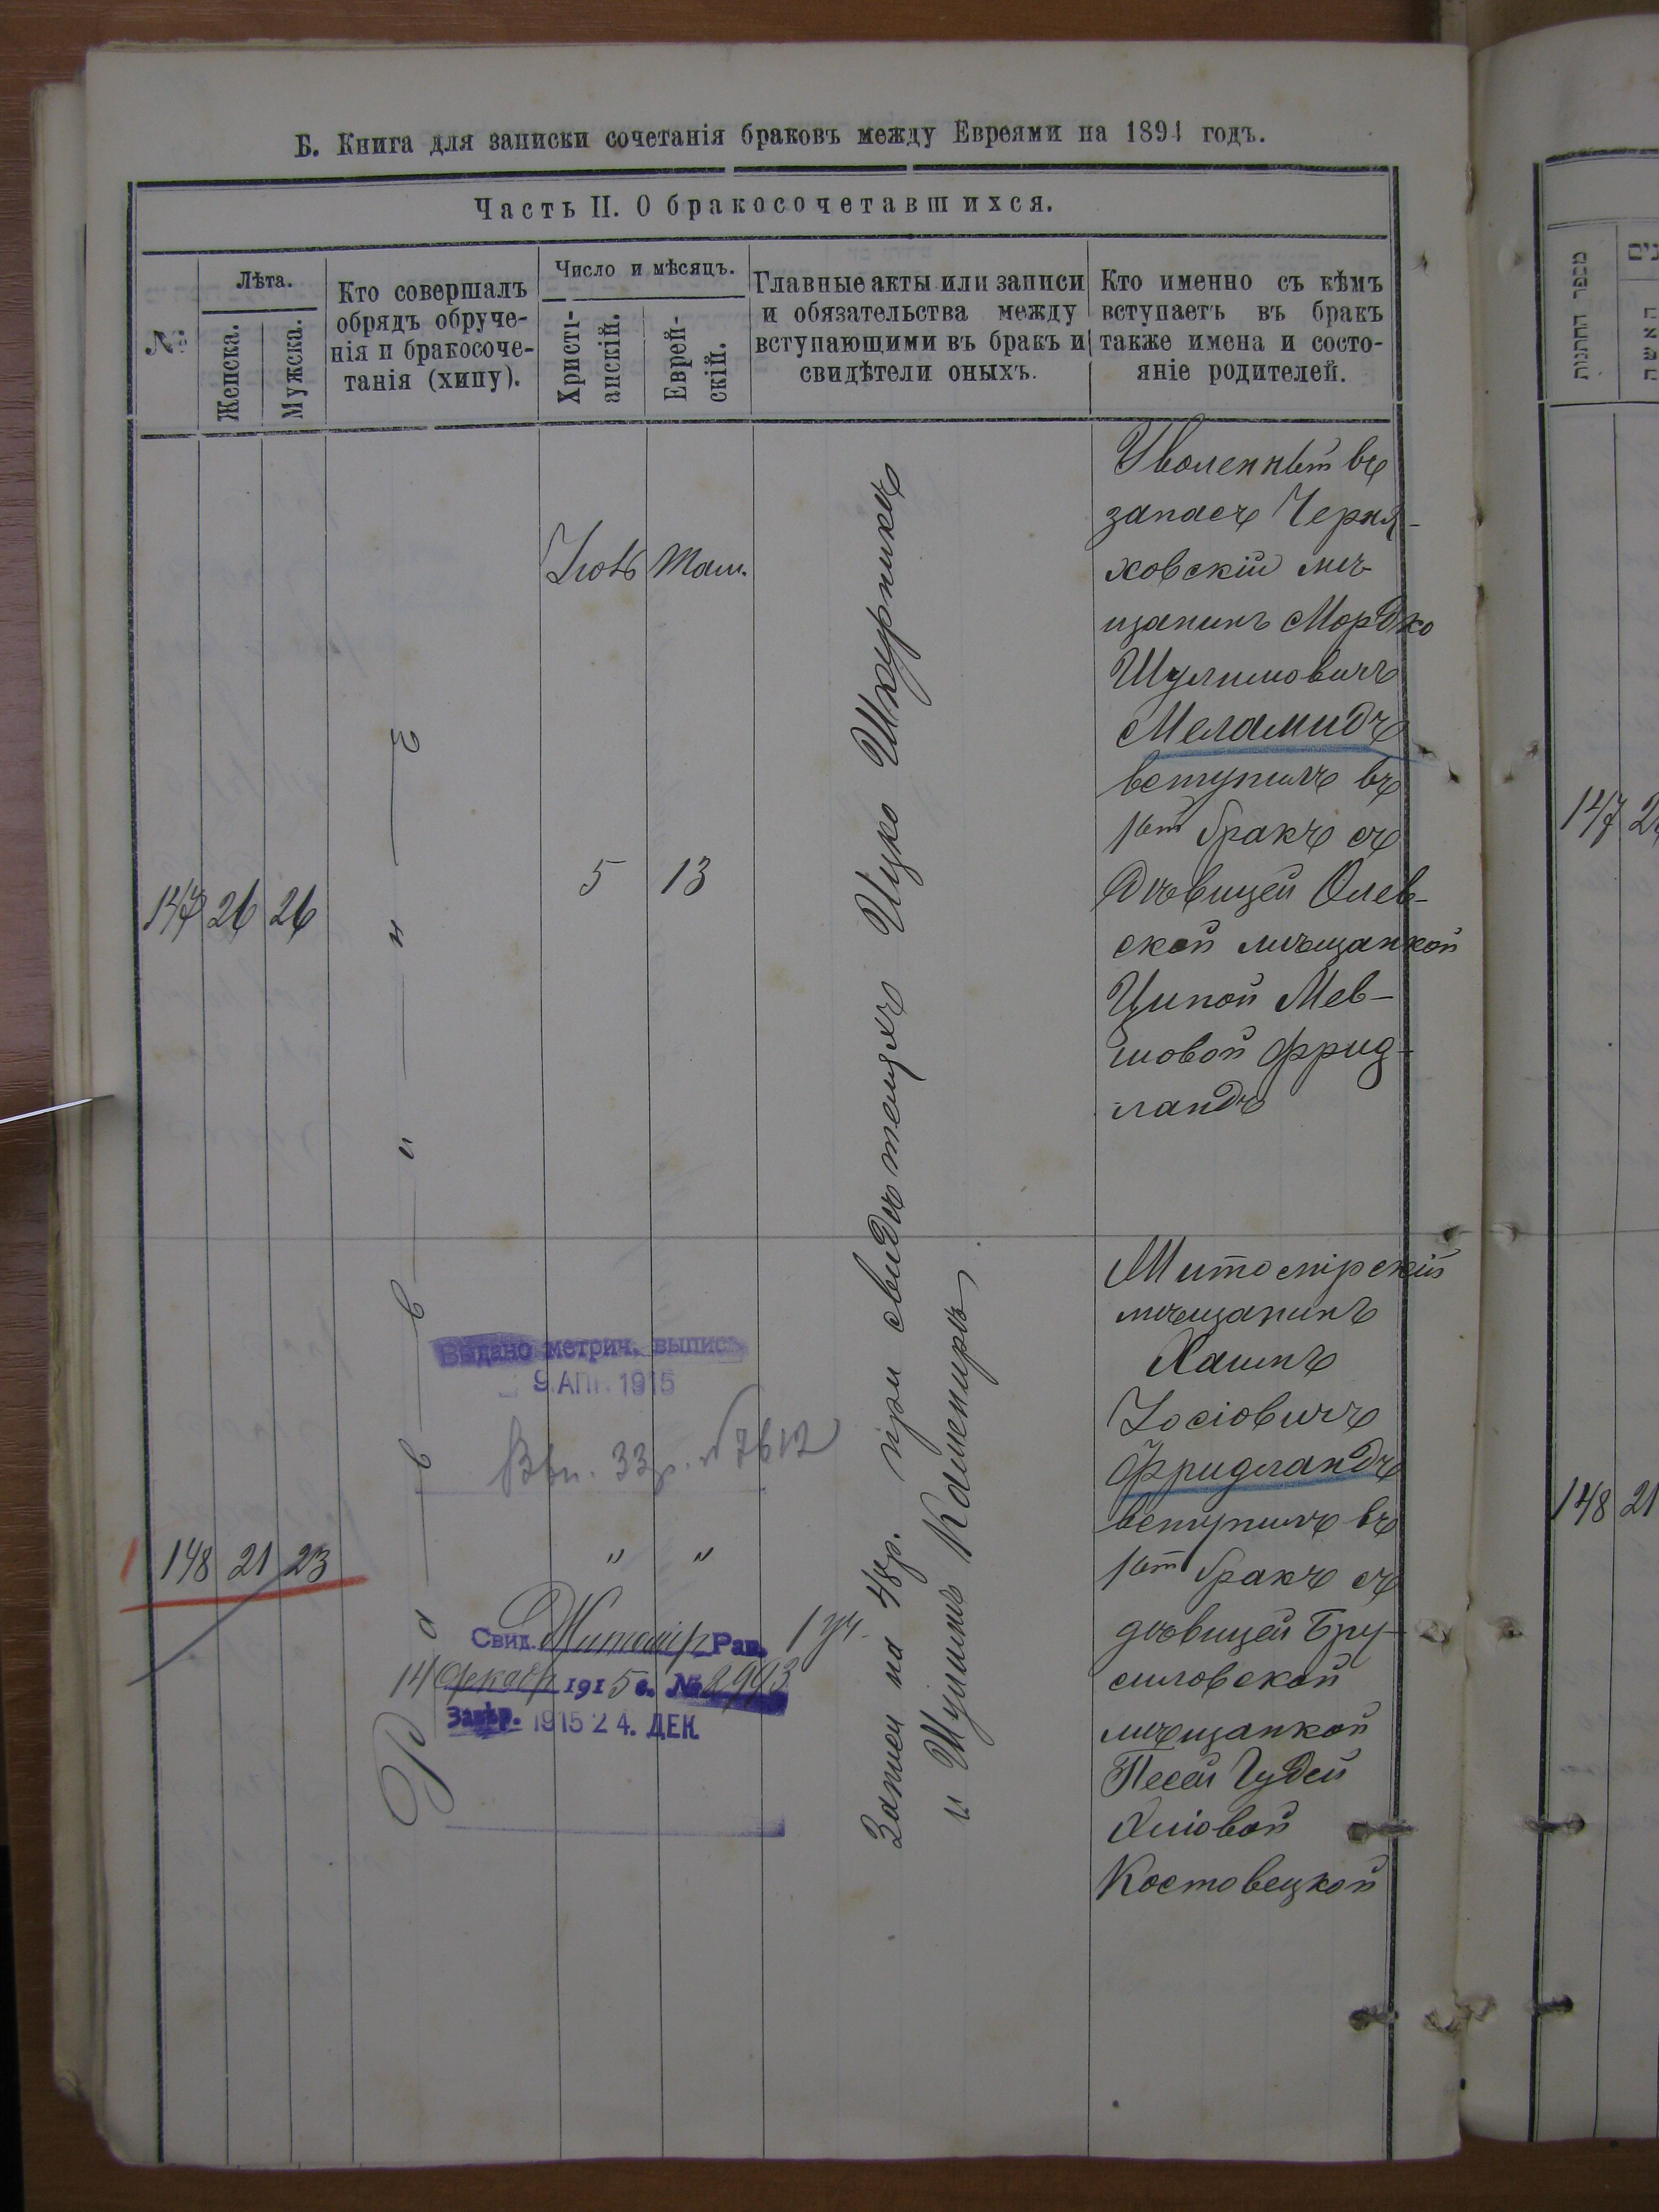 Б. Книга для записки сочетанія браковъ между Евреями на 1891 годъ.
Часть II. О бракосочетавшихся.
№
Лѣта.
Женска.
Мужска.
Кто совершалъ
обрядъ обруче-
нія и бракосоче-
танія (хипу).
Число и мѣсяцъ.
Христі-
анскій.
Еврей-
скій.
Главные акты или записи
и обязательства между
вступающими въ бракъ и
свидѣтели оныхъ.
Кто именно съ кѣмъ
вступаетъ въ бракъ
также имена и состо-
яніе родителей.
147 26 26
Раввинъ
Іюль Там.
5 13
Запись на 48р. при свидѣтеляхъ Ицко Шкурникъ
и Шулимъ Камениръ
Уволенный въ
запасъ Черня-
ховскій мѣ-
щанинъ Мордко
Шулимовичъ
Меламидъ
вступилъ въ
1ый бракъ съ
дѣвицей Олев-
ской мѣщанкой
Ципой Мев-
шовой Фрид-
ландъ
148 21 23
" "
Житомірскій
мѣщанинъ
Хаимъ
Іосіовичъ
Фридландъ
вступилъ въ
1ый бракъ съ
дѣвицей Бру-
силовской
мѣщанкой
Песей Гудей
Хаіовой
Костовецкой
Выдано метрич. выпис
9. АПР. 1915
№ 7612
Свид. Житомір Рав. 1 уч.
14 Декабр 1915 г. № 2993
Завѣр. 1915 24. ДЕК
מספר החתנות
האשה
147 2
148 21